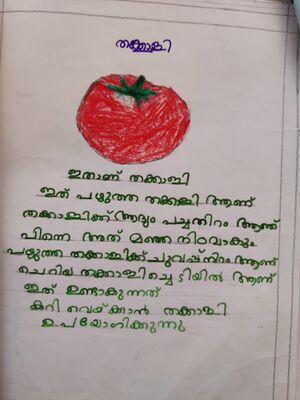 തക്കാളി
ഇതാണ് തക്കാളി
ഇത് പഴുത്ത തക്കാളി ആണ്
തക്കാളിക്ക് ആദ്യം പച്ചനിറം ആണ്
പിന്നെ അത് മഞ്ഞ നിറവാകും
പഴുത്ത തക്കാളിക്ക് ചുവപ്പ് നിറം ആണ്
ചെറിയ തക്കാളിച്ചെടിയിൽ ആണ്
ഇത് ഉണ്ടാകുന്നത്
കറി വെയ്ക്കാൻ തക്കാളി
ഉപയോഗിക്കുന്നു